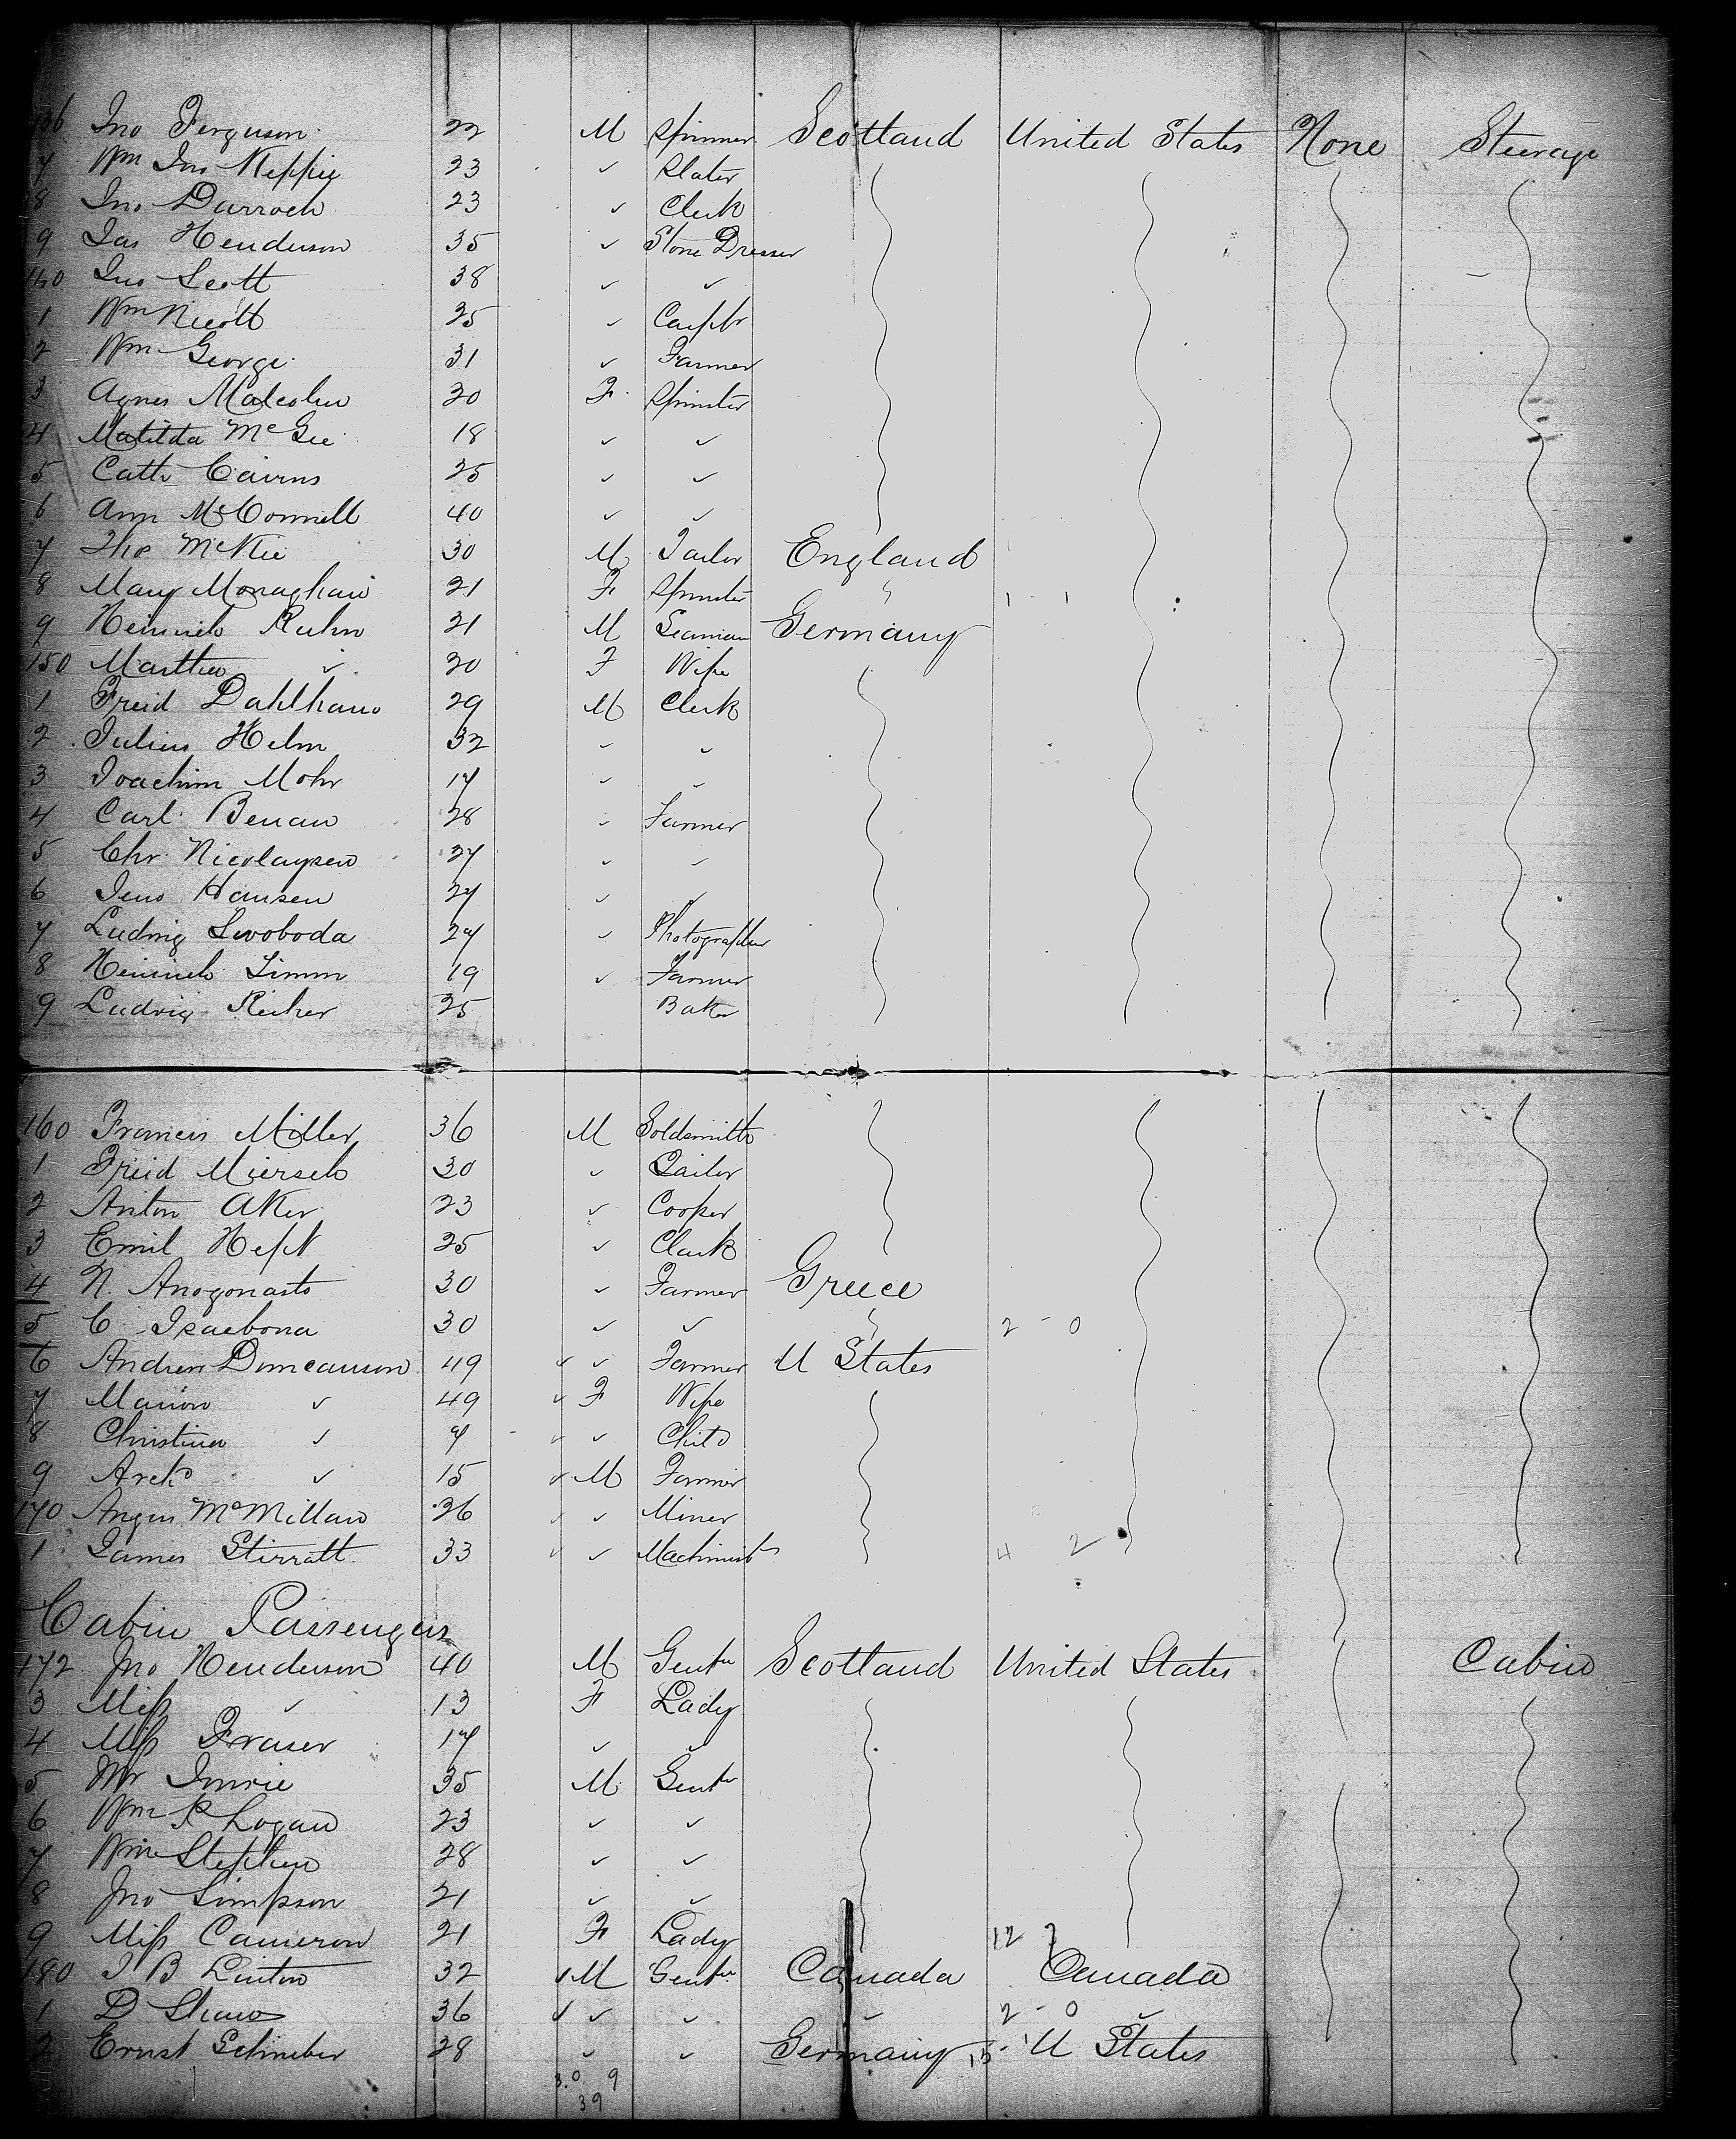 136 Jno Ferguson 22 M Spinner Scotland United States None Steerage
7 Wm Jno Keppie 23 ✓ Slater
8 Jno Darroch 23 ✓ Clerk
9 Jas Henderson 35 ✓ Stone Dresser
140 Jno Scott 38 ✓ ✓
1 Wm Nicoll 25 ✓ Carptr
2 Wm George 31 ✓ Farmer
3 Agnes Malcolm 20 F Spinster
4 Matilda McGee 18 ✓ ✓
5 Cath Cairns 25 ✓ ✓
6 Ann McConnell 40 ✓ ✓
7 Tho McKee 30 M Tailor England
8 Mary Monaghan 21 F Spinster 1 - 1
9 Heinrich Kuhn 31 M Seaman Germany
150 Martha ✓ 30 F Wife
1 Freid Dahlhaus 29 M Clerk
2 Julius Helm 32 ✓ ✓
3 Joachim Mohr 17 ✓ ✓
4 Carl Benau 28 ✓ Farmer
5 Chr Nicolaysen 27 ✓ ✓
6 Jens Hansen 27 ✓ ✓
7 Ludwig Swoboda 27 ✓ Photographer
8 Heinrich Timm 19 ✓ Farmer
9 Ludwig Reiher 25 Baker
160 Francis Miller 36 M Goldsmith
1 Freid Miersch 30 ✓ Tailor
2 Anton Aker 23 ✓ Cooper
3 Emil Heft 25 ✓ Clerk
4 N. 30 ✓ Farmer Greece
5 C. 30 ✓ ✓ 2 - 0
6 Andrew Duncanson 49 ✓ ✓ Farmer U States
7 Marion ✓ 49 ✓ F Wife
8 Christina ✓ 7 ✓ ✓ Child
9 Archd ✓ 15 ✓ M Farmer
170 Angus McMillan 26 ✓ ✓ Miner
1 James Stirratt 33 ✓ ✓ Machinist 4 2
Cabin Passengers
172 Jno Henderson 40 M Gentn Scotland United States Cabin
3 Miss ✓ 13 F Lady
4 Miss Fraser 17 ✓ ✓
5 Mr Imrie 35 M Gentn
6 Wm R Logan 23 ✓ ✓
7 Wm Stephen 28 ✓ ✓
8 Jno Simpson 21 ✓ ✓
9 Miss Cameron 21 F Lady 12 7
180 J B Linton 32 ✓ M Gentn Canada Canada
1 D Shaw 36 ✓ ✓ ✓ ✓ 2 - 0 ✓
2 Ernst Schreiber 28 ✓ ✓ Germany 15 - U States
30 9
39